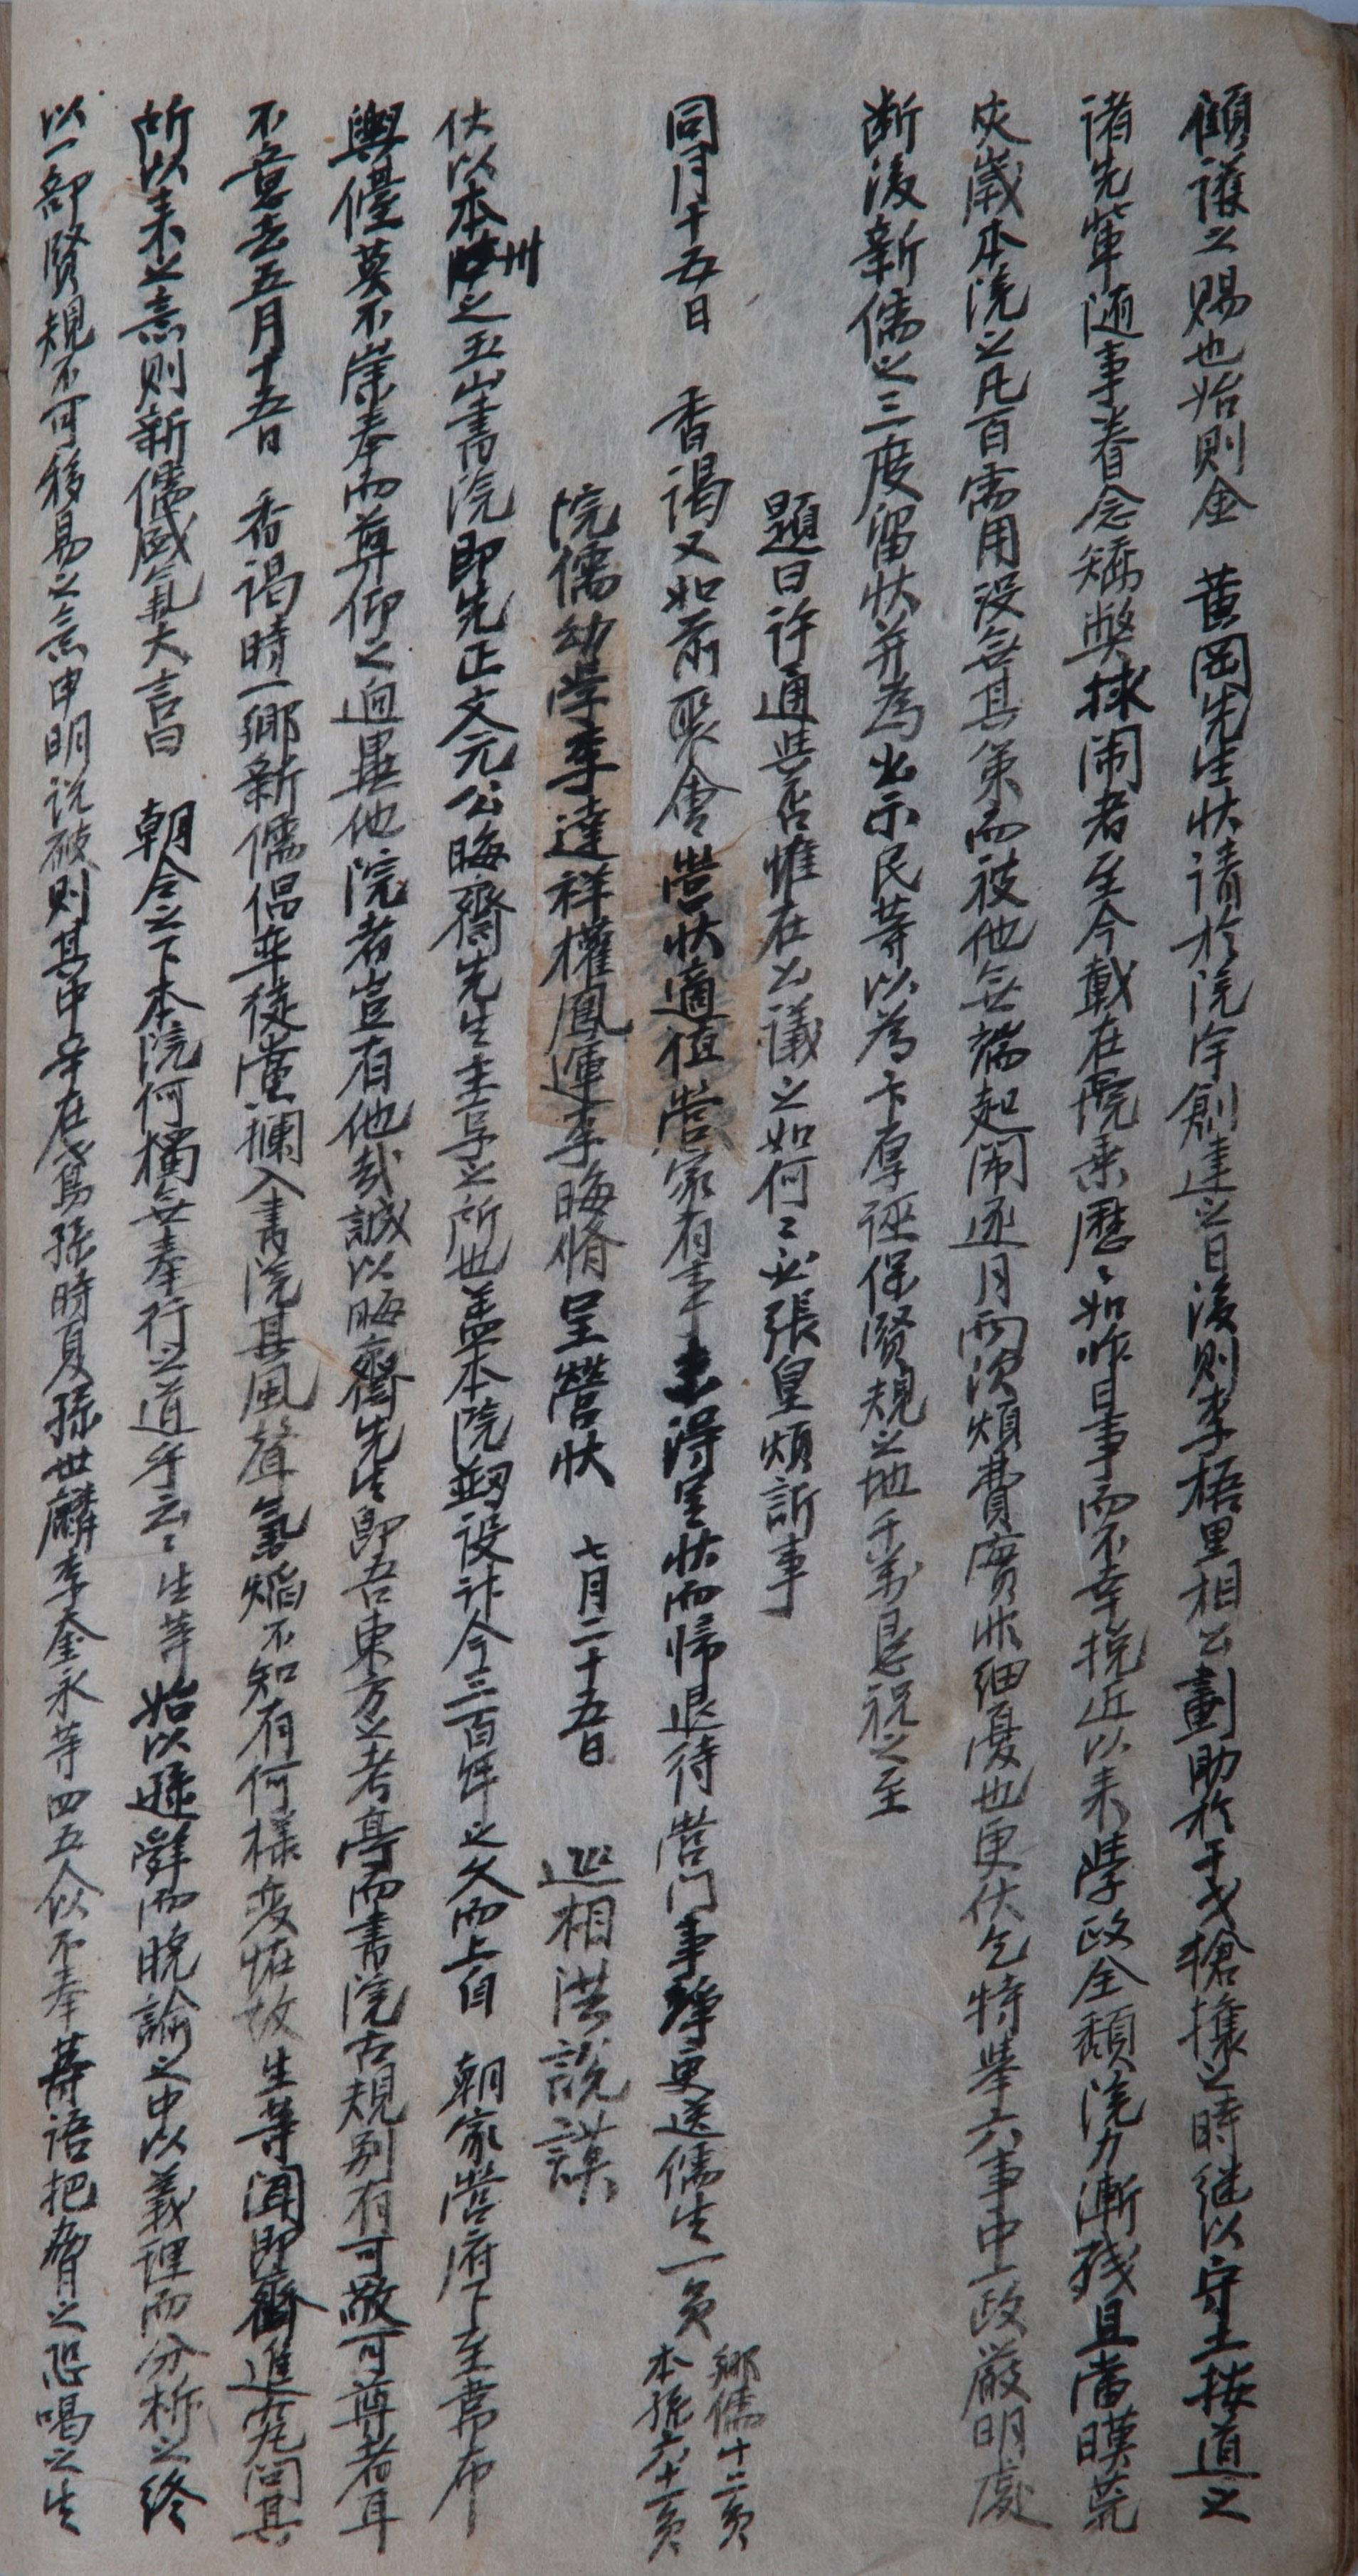 顧護之賜也始則金 黃岡先生狀請於院宇創建之日後則李梧里相公劃助於干戈搶攘之時継以守土按道之
諸先軰随事眷念矯弊捄闹者至今載在院乘歷〻如昨日事而不幸挽近以来學政全頹院力漸殘且當暵荒
灾歲本院之凡百需用沒無其策而被他無端起闹逐月兩次煩費實非細憂也更伏乞特举六事中一政嚴明處
断後新儒之三度留状并為出示民等以為卞厚誣保賢規之地千萬恳祝之至
題曰許通與否惟在公議之如何〻必張皇煩訴事
同月十五日 香謁又如前聚會營状適值營家有事未得呈状而帰退待營门事靜更送儒生一員 鄕儒十二員
本孫六十一員
院儒幼學李達祥權鳳運李晦脩呈營状 七月二十五日 巡相洪說謨
伏以本州之玉山書院即先正文元公晦齋先生主享之所也盖本院刱設于今三百年之久而上自 朝家營府下至韋布
輿儓莫不崇奉而尊仰之逈異他院者豈有他哉誠以晦齋先生即吾東方之考亭而書院古規别有可敬可尊者耳
不意去五月十五日 香謁時一鄉新儒倡率徒黨攔入書院其風聲氣焰不知有何樣変恠故生等闻即齊進究问其
所以来之意则新儒盛氣大言曰 朝令之下本院何獨無奉行之道乎云〻生等始以遜辭而曉諭之中以義理而分析之終
以一部賢規不可移易之意申明說破则其中辛在䳽孫時夏孫世麟李奎永等四五人以不奉等语把脅之恐喝之生